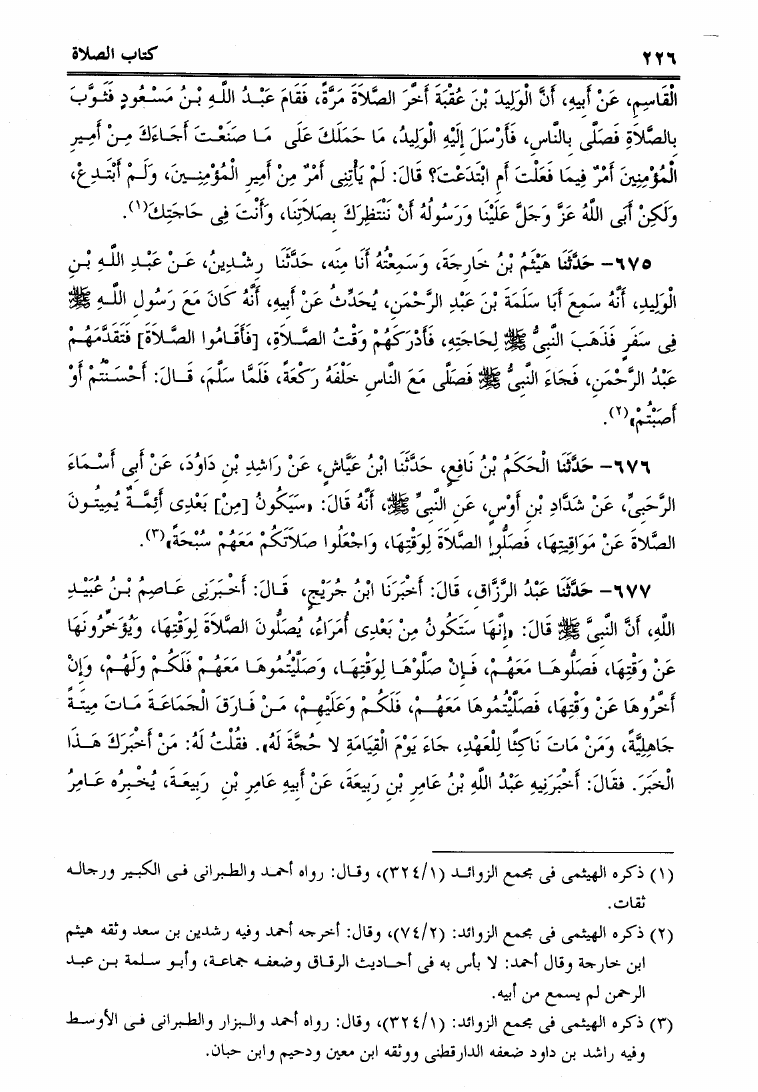 ٢٢٦ كتاب الصلاة
القَاسِمِ، عَنْ أَبِيهِ، أَنَّ الْوَلِيدَ بْنَ عُقْبَةَ أَخَّرَ الصَّلاَةَ مَرَّةً، فَقَامَ عَبْدُ اللَّهِ بْنُ مَسْعُودٍ فَثَوَّبَ
بِالصَّلاَةِ فَصَلَّى بِالنَّاسِ، فَأَرْسَلَ إِلَيْهِ الْوَلِيدُ، مَا حَمَلَكَ عَلَى مَا صَنَعْتَ أَجَاءَكَ مِنْ أَمِيرِ
الْمُؤْمِنِينَ أَمْرٌ فِيمَا فَعَلْتَ أَمِ ابْتَدَعْتَ؟ قَالَ: لَمْ يَأْتِنِى أَمْرٌ مِنْ أَمِيرِ الْمُؤْمِنِينَ، وَلَمْ أَبْتَدِعْ،
وَلَكِنْ أَبَى اللَّهُ عَزَّ وَجَلَّ عَلَيْنَا وَرَسُولُهُ أَنْ نَنْتَظِرَكَ بِصَلاَتِنَا، وَأَنْتَ فِى حَاجَتِكَ(١).
٦٧٥- حَدَّثَنَا هَيْثَمُ بْنُ خَارِجَةَ، وَسَمِعْتُهُ أَنَا مِنْه، حَدَّثَنَا رِشْدِينُ، عَنْ عَبْدِ اللَّهِ بْنِ
الْوَلِيدِ، أَنَّهُ سَمِعَ أَبَا سَلَمَةَ بْنَ عَبْدِ الرَّحْمَنِ، يُحَدِّثُ عَنْ أَبِيهِ، أَنَّهُ كَانَ مَعَ رَسُولِ اللَّهِ ﷺ
فِى سَفَرٍ فَذَهَبَ النَّبِىُّ ﷺ لِحَاجَتِهِ، فَأَدْرَكَهُمْ وَقْتُ الصَّلاَةِ، [فَأَقَامُوا الصَّلاَةَ] فَتَقَدَّمَهُمْ
عَبْدُ الرَّحْمَنِ، فَجَاءَ النَّبِىُّ ﷺ فَصَلَّى مَعَ النَّاسِ خَلْفَهُ رَكْعَةً، فَلَمَّا سَلَّمَ، قَالَ: أَحْسَنْتُمْ أَوْ
أَصَبْتُمْ»(٢).
٦٧٦- حَدَّثَنَا الْحَكَمُ بْنُ نَافِعٍ، حَدَّثَنَا ابْنُ عَيَّاشٍ، عَنْ رَاشِدِ بْنِ دَاوُدَ، عَنْ أَبِى أَسْمَاءَ
الرَّحَبِىِّ، عَنْ شَدَّادِ بْنِ أَوْسٍ، عَنِ النَّبِىِّ ﷺ، أَنَّهُ قَالَ: «سَيَكُونُ [مِنْ] بَعْدِى أَئِمَّةٌ يُمِيتُونَ
الصَّلاَةَ عَنْ مَوَاقِيتِهَا، فَصَلُّوا الصَّلاَةَ لِوَقْتِهَا، وَاجْعَلُوا صَلاَتَكُمْ مَعَهُمْ سُبْحَةً»(٣).
٦٧٧- حَدَّثَنَا عَبْدُ الرَّزَّاقِ، قَالَ: أَخْبَرَنَا ابْنُ جُرَيْجٍ، قَالَ: أَخْبَرَنِى عَاصِمُ بْنُ عُبَيْدِ
اللَّهِ، أَنَّ النَّبِىَّ ﷺ قَالَ: «إِنَّهَا سَتَكُونُ مِنْ بَعْدِى أُمَرَاءُ، يُصَلُّونَ الصَّلاَةَ لِوَقْتِهَا، وَيُؤَخِّرُونَهَا
عَنْ وَقْتِهَا، فَصَلُّوهَا مَعَهُمْ، فَإِنْ صَلَّوْهَا لِوَقْتِهَا، وَصَلَّيْتُمُوهَا مَعَهُمْ فَلَكُمْ وَلَهُمْ، وَإِنْ
أَخَّرُوهَا عَنْ وَقْتِهَا، فَصَلَّيْتُمُوهَا مَعَهُمْ، فَلَكُمْ وَعَلَيْهِمْ، مَنْ فَارَقَ الْجَمَاعَةَ مَاتَ مِيتَةً
جَاهِلِيَّةً، وَمَنْ مَاتَ نَاكِثًا لِلْعَهْدِ، جَاءَ يَوْمَ الْقِيَامَةِ لا حُجَّةَ لَهُ». فقُلْتُ لَهُ: مَنْ أَخْبَرَكَ هَذَا
الْخَبَرَ. فقَالَ: أَخْبَرَنِيهِ عَبْدُ اللَّهِ بْنُ عَامِرِ بْنِ رَبِيعَةَ، عَنْ أَبِيهِ عَامِرِ بْنِ رَبِيعَةَ، يُخْبِرُه عَامِرُ
(١) ذكره الهيثمى فى مجمع الزوائد (٣٢٤/١)، وقال: رواه أحمد والطبرانى فى الكبير ورجاله
ثقات.
(٢) ذكره الهيثمى فى مجمع الزوائد: (٧٤/٢)، وقال: أخرجه أحمد وفيه رشدين بن سعد وثقه هيثم
ابن خارجة وقال أحمد: لا بأس به فى أحاديث الرقاق وضعفه جماعة، وأبو سلمة بن عبد
الرحمن لم يسمع من أبيه.
(٣) ذكره الهيثمى فى مجمع الزوائد: (٣٢٤/١)، وقال: رواه أحمد والبزار والطبرانى فى الأوسط
وفيه راشد بن داود ضعفه الدارقطنى ووثقه ابن معين ودحيم وابن حبان.